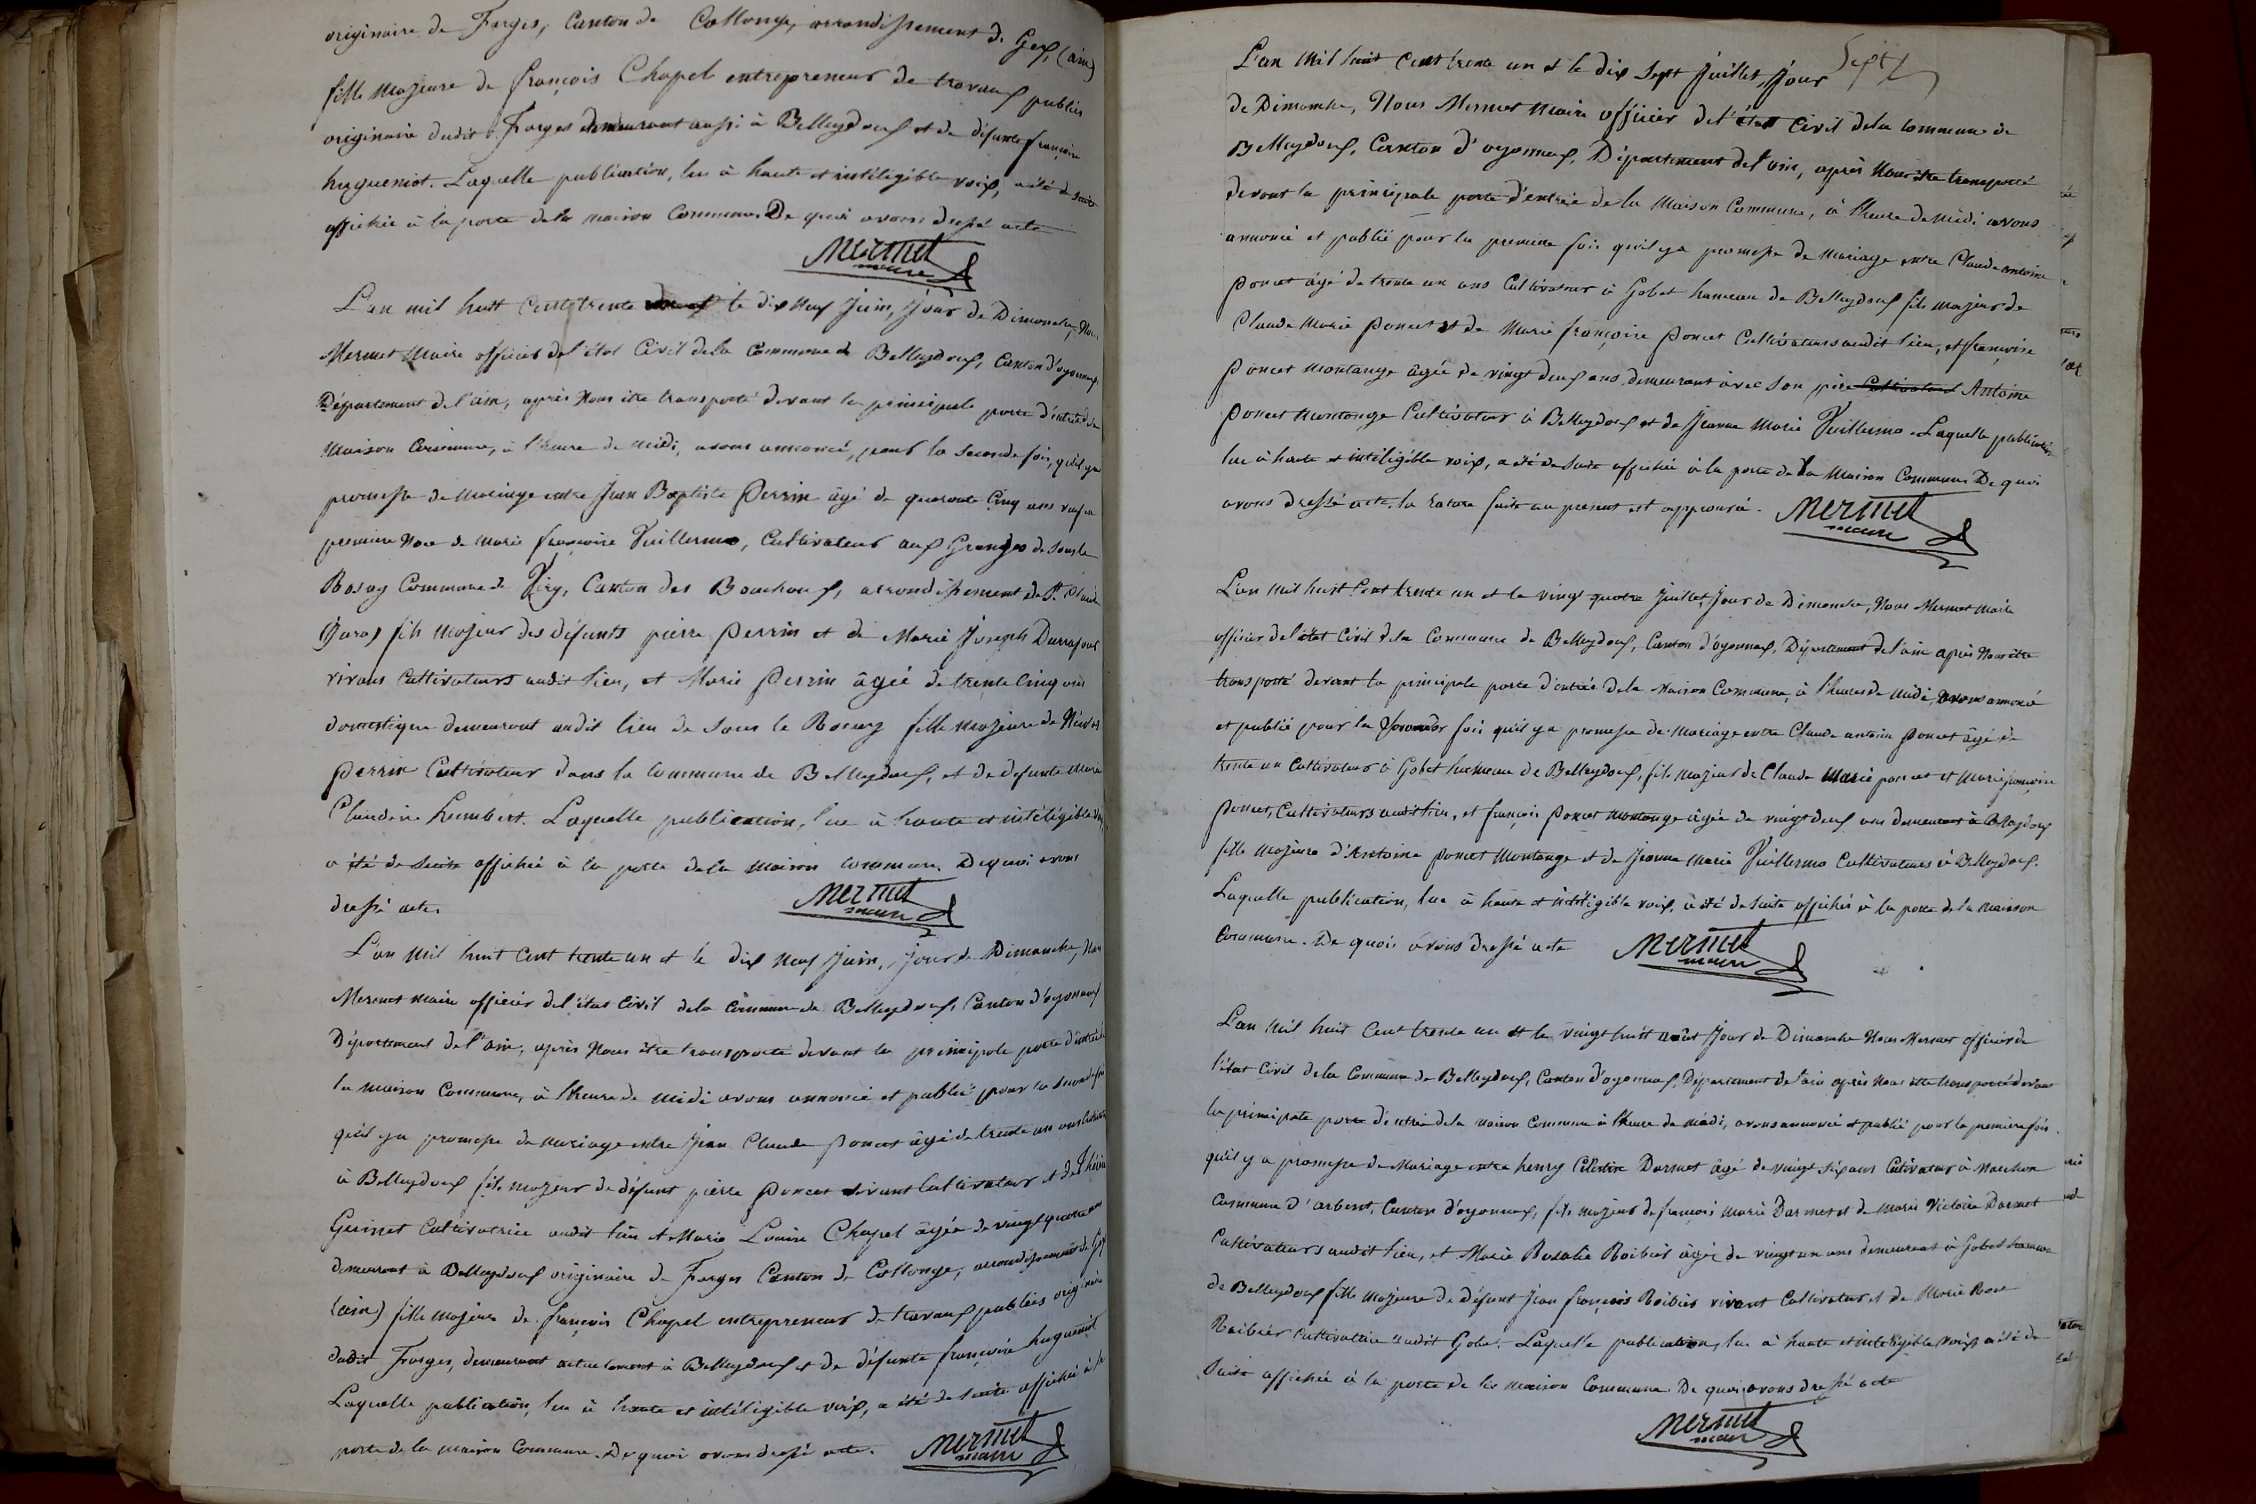 originaire de Forges, Canton de Collonge, arrondissement de Gex, (ain)
fille majeure de françois Chapel entrepreneur de travaux publics
originaire dudit Forges demeurant aussi à Belleydoux et de défunte françoise
hugueniot. Laquelle publication, lue à haute et intéligible voix, a été de suite
affichée à la porte de la maison Commune. De quoi avons dressé acte
Mermet
maire
L'an mil huit Cent trente le dix neuf Juin, Jour de Dimanche, Nous
Mermet Maire officier de l'état Civil de la Commune de Belleydoux, Canton d'oyonnax,
Département de l'ain, après Nous être transporté devant la principale porte d'entrée de la
Maison Commune, à l'heure de midi, avons annoncé, pour la seconde fois, qu'il y a
promesse de mariage entre Jean Baptiste Perrin âgé de quarante Cinq ans veuf en
première Noce de Marie françoise Vuillermo, Cultivateur aux Granges de Sous le
Rosay Commune de Viry, Canton des Bouchoux, arrondissement de St. Claude
(Jura) fils Majeur des défunts pierre Perrin et de Marie Joseph Durrafour
vivans Cultivateurs audit lieu, et Marie Perrin âgée de trente Cinq ans
domestique demeurant audit lieu de Sous le Rosay fille majeure de
Perrin Cultivateur dans la Commune de Belleydoux, et de defunte Marie
Claudine humbert. Laquelle publication, lue à haute et intéligible voix,
a été de suite affichée à la porte de la maison Commune. De quoi avons
dressé acte.
Mermet
maire
L'an Mil huit Cent trente un et le dix Neuf Juin, Jour de Dimanche, Nous
Mermet Maire officier de l'état Civil de la Commune de Belleydoux, Canton d'oyonnax
Département de l'ain, après Nous être transporté devant la principale porte d'entrée de
la maison Commune, à l'heure de midi avons annoncé et publié pour la seconde fois
qu'il y a promesse de mariage entre Jean Claude Poncet âgé de trente un ans Cultivateur
à Belleydoux fils majeur de défunt pierre Poncet vivant Cultivateur et de
Grinet Cultivatrice audit lieu et Marie Louise Chapel âgée de vingt quatre ans
demeurant à Belleydoux originaire de Forges Canton de Collonge, arrondissement de Gex
(ain) fille majeure de françois Chapel entrepreneur de travaux publics originaire
dudit Forges, demeurant actuelement à Belleydoux et de défunte françoise hugueniot
Laquelle publication, lue à haute et intéligible voix, a été de suite affichée à la
porte de la maison Commune. De quoi avons dressé acte.
Mermet
maire
Sept
L'an Mil huit Cent trente un et le dix Sept Juillet, Jour
de Dimanche, Nous Mermet Maire officier de l'état Civil de la Commune de
Belleydoux, Canton d'oyonnax, Département de l'ain, après Nous être transporté
devant la principale porte d'entrée de la Maison Commune, à l'heure de Midi avons
annoncé et publié pour la premiere fois qu'il y a promesse de Mariage entre Claude antoine
Poncet âgé de trente un ans Cultivateur à Gobet hameau de Belleydoux fils majeur de
Claude Marie Poncet et de Marie françoise Poncet Cultivateurs audit lieu, et françoise
Poncet Montange âgée de vingt deux ans demeurant avec son père Cultivateur Antoine
Poncet Montange Cultivateur à Belleydoux et de Jeanne Marie Vuillermo. Laquelle publication
lue à haute et intéligible voix, a été de suite affichée à la porte de la Maison Commune De quoi
avons dressé acte. la rature faite au présent est approuvé.
Mermet
maire
L'an Mil huit Cent trente un et le vingt quatre Juillet, Jour de Dimanche, Nous Mermet Maire
officier de l'état Civil de la Commune de Belleydoux, Canton d'oyonnax, Département de l'ain après Nous être
transporté devant la principale porte d'entrée de la Maison Commune, à l'heure de Midi, avons annoncé
et publié pour la seconde fois qu'il y a promesse de Mariage entre Claude antoine Poncet âgé de
trente un Cultivateur à Gobet hameau de Belleydoux, fils majeur de Claude Marie poncet et Marie françoise
Poncet, Cultivateurs audit lieu, et françoise Poncet Montange âgée de vingt deux ans demeurant à Belleydoux
fille Majeure d'Antoine Poncet Montange et de Jeanne Marie Vuillermo Cultivateurs à Belleydoux.
Laquelle publication, lue à haute et intéligible voix, a été de suite affichée à la porte de la Maison
Commune. De quoi avons dressé acte
Mermet
maire
L'an Mil huit Cent trente un et le vingt huit août Jour de Dimanche Nous Mermet officier de
l'état Civil de la Commune de Belleydoux, Canton d'oyonnax, Département de l'ain après Nous être transporté devant
la principale porte d'entrée de la Maison Commune à l'heure de Midi, avons annoncé et publié pour la premiere fois
qu'il y a promesse de Mariage entre henry Célestin Darmet âgé de vingt six ans Cultivateur à
Commune d'arbent, Canton d'oyonnax, fils majeur de françois Marie Darmet et de Marie Victoire Darmet
Cultivateurs audit lieu, et Marie Rosalie Roibier âgée de vingt un ans demeurant à Gobet hameau
de Belleydoux fille Majeure de défunt Jean françois Roibier vivant Cultivateur et de Marie
Roibier Cultivatrice audit Gobet. Laquelle publication, lue à haute et inteligible voix a été de
Suite affichée à la porte de la maison Commune. De quoi avons dressé acte
Mermet
maire